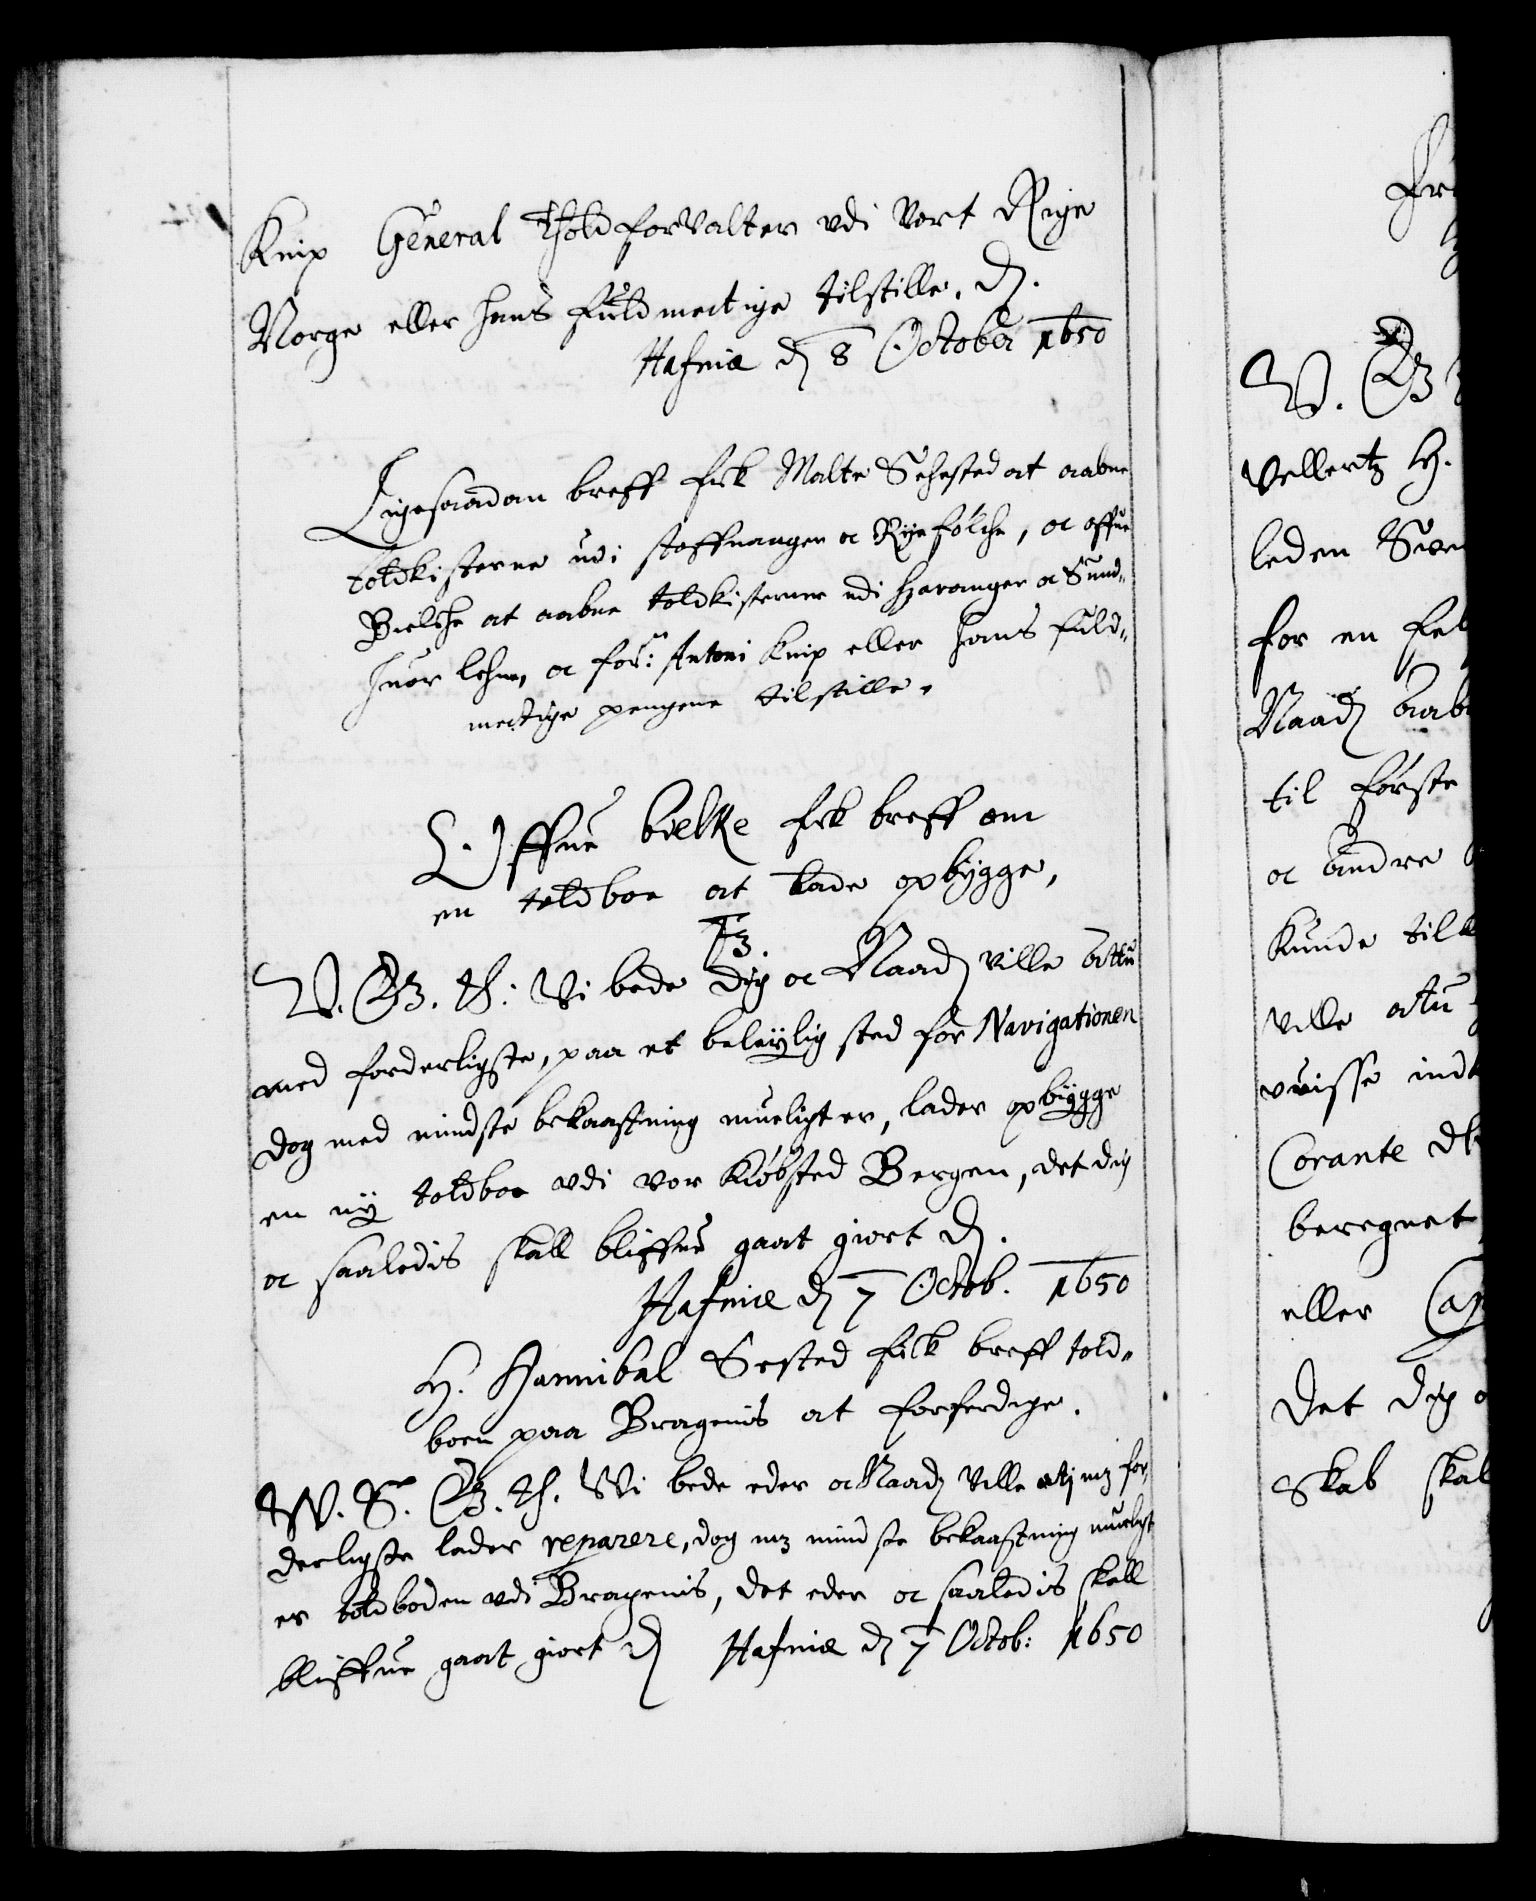 Knip General Thold forvalter vdi Vort Rige
Norge eller hans fuldmectige tilstille. D.
Hafniæ D 8 October 1650
Ligesaadan breff fik Malte Sehested at aabne
toldkisterne udi staffvanger oc Ryefølche, oc offue
Bielche at aabne toldkisterne udi Haranger oc Sund-
huor lehne, oc for: Antoni Knip eller hans fuld-
mectige pengene tilstille.
Offue bielke fik breff om
en toldboe at lade opbygge,
F3.
V. G3. Th: Vi bede dig oc Naad. ville attu
med forderligste, paa et beleylig sted for Navigationen
dog med mindste bekaastning mueligt er, lader opbygge
en ny toldboe vdi vor Kiøbsted Bergen, det dig
oc saaledis skall bliffue gaat giort D.
Hafniæ D 7 Octob. 1650
H. Hannibal Sested fick breff told-
boen paa Bragenis at forferdige.
W. S. G3. Th. Wi bede eder oc Naad. ville atj m3 for-
derligste lader reparere, dog m3 mindste bekaastning mueligt
er toldboden vdi Bragenis, det eder oc saaledis skall
bliffue gaat giort D Hafniæ D 7 Octob: 1650
V. G3
Vellertz H.
leden Sven
for en fel
Naad. aab
til første
oc andre
Kunde till
ville attu
visse ind
Corante dl
beregnet
eller Cap
det dig o
skab skal